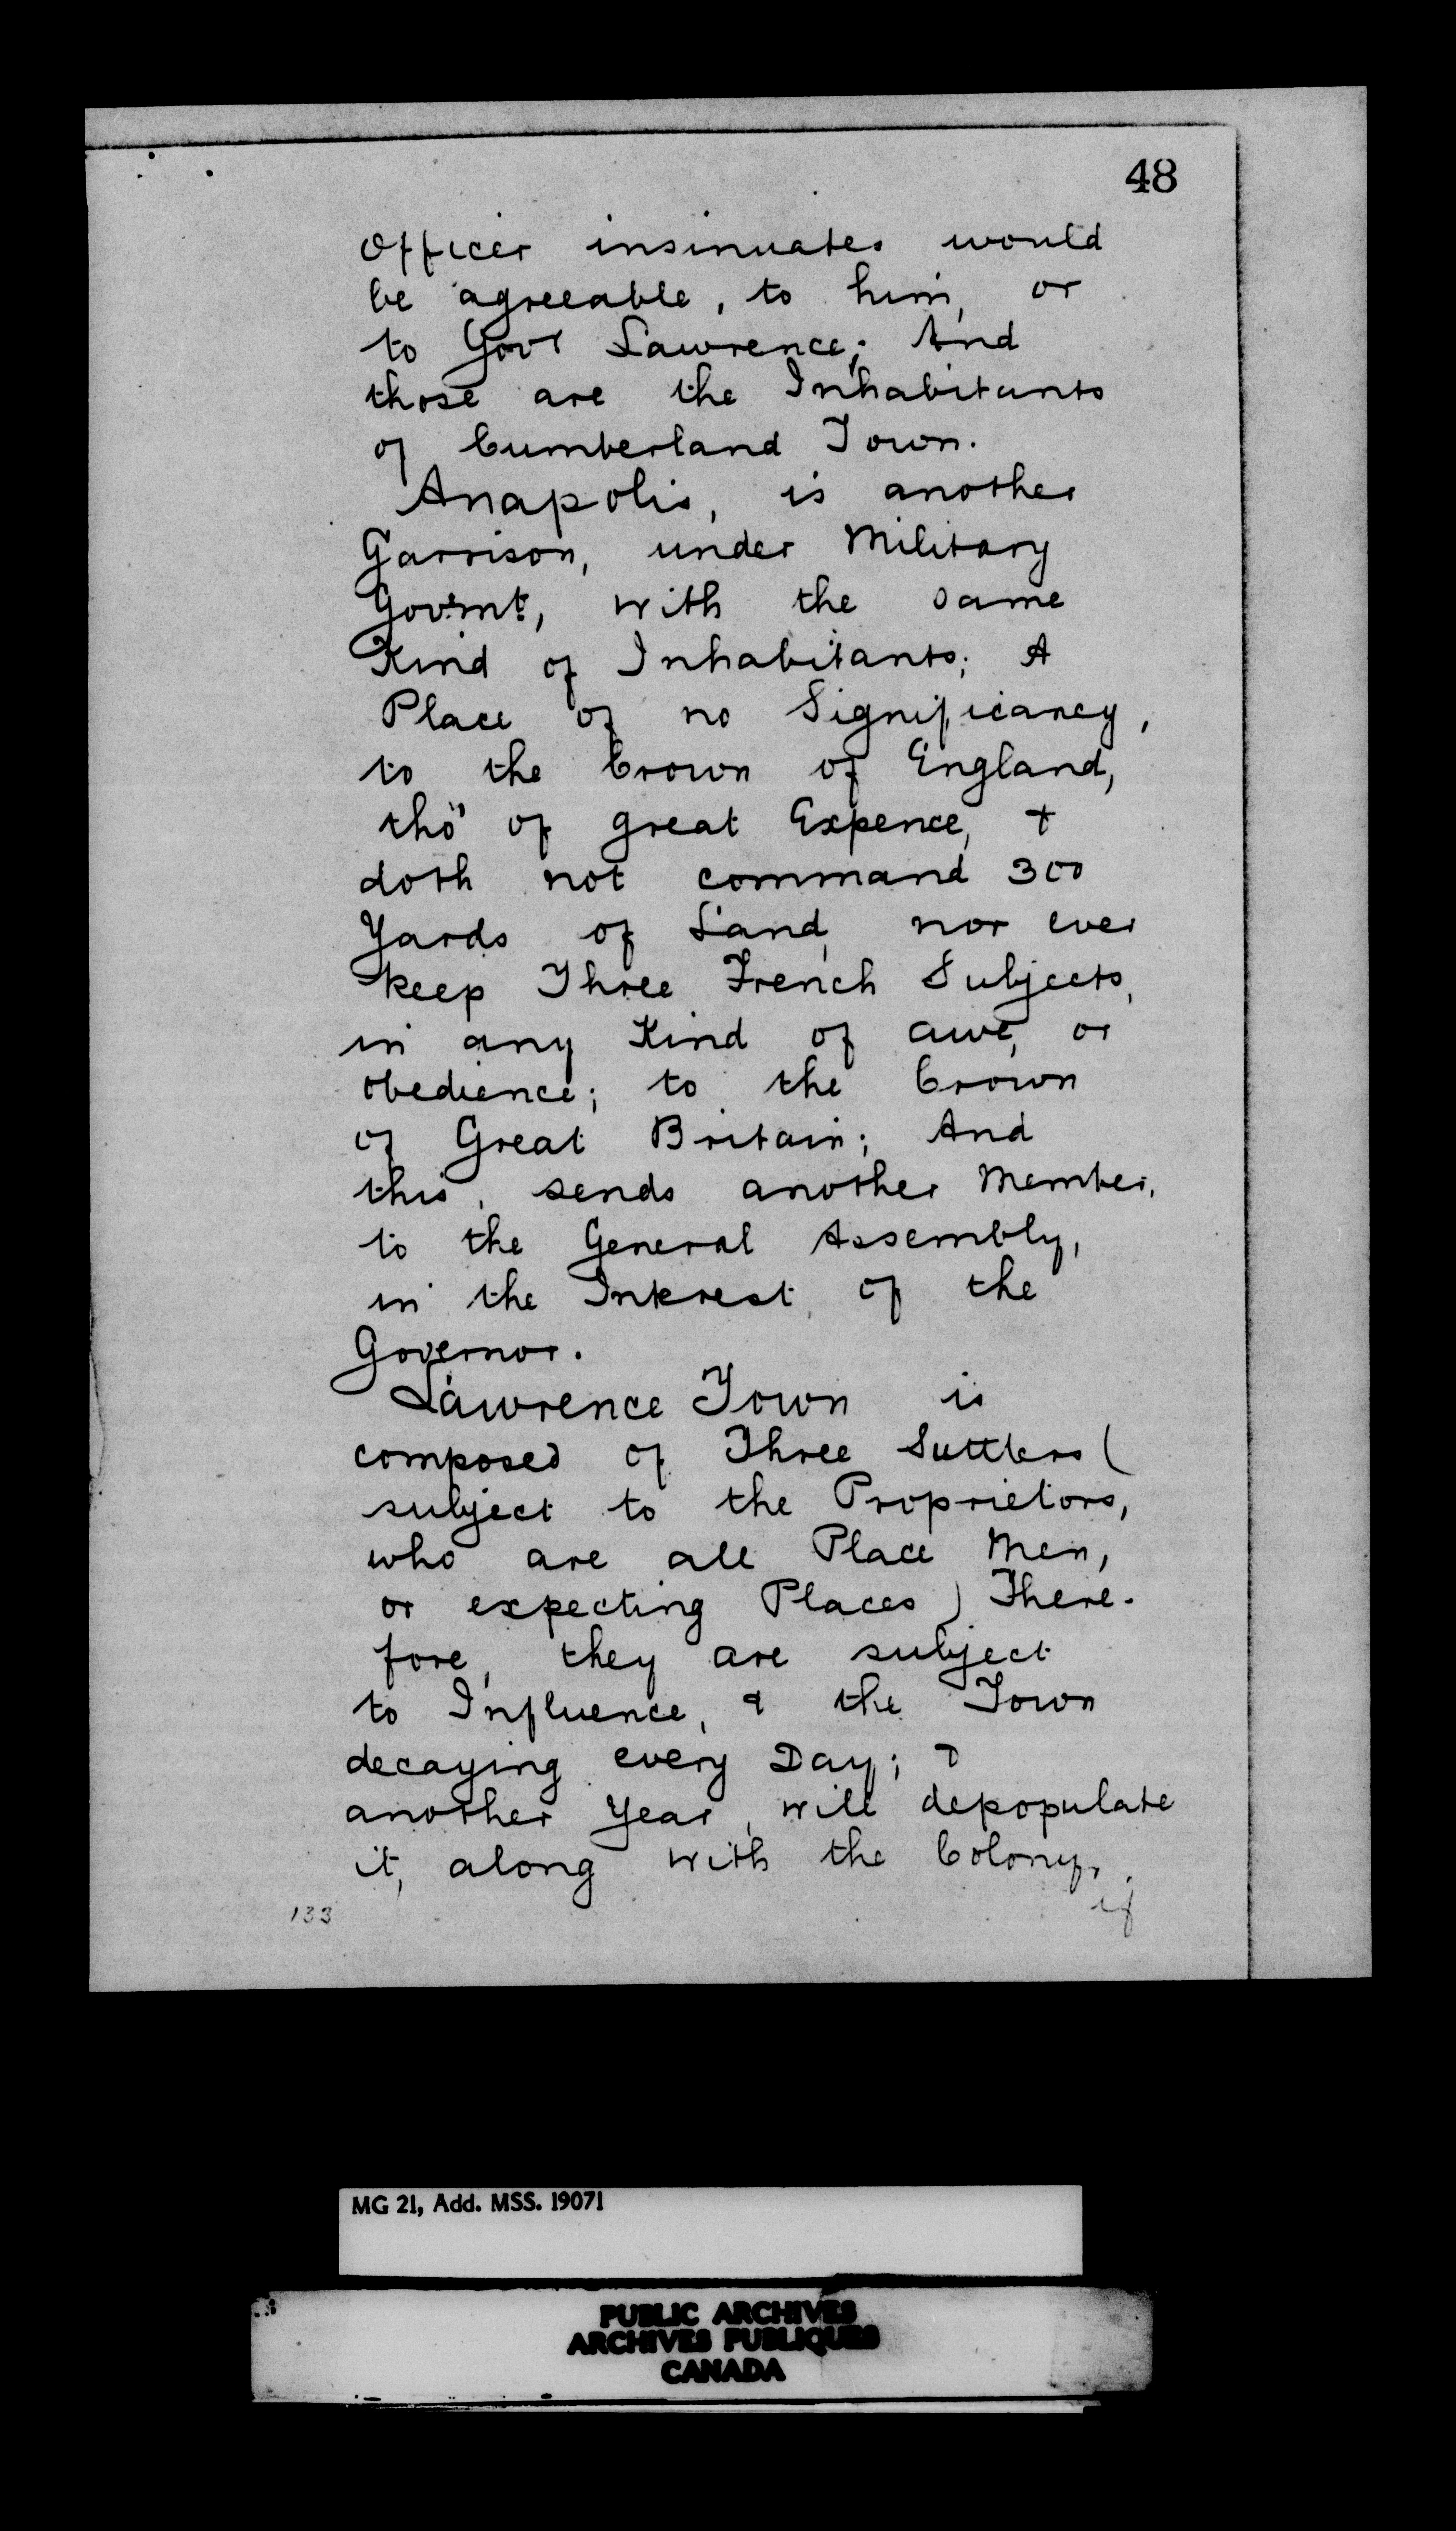 48
Officer insinuates would
be agreeable, to him, or
to Govr Lawrence; And
those are the Inhabitants
of Cumberland Town.
Anapolis, is another
Garrison, under Military
Govrmt, with the same
Kind of Inhabitants; A
Place of no Significancy,
to the Crown of England,
tho' of great Expence, &
doth not command 300
Yards of Land, nor ever
keep Three French Subjects,
in any Kind of awe, or
obedience; to the Crown
of Great Britain; And
this, sends another Member,
to the General Assembly,
in the Interest, of the
Governor.
Lawrence Town is
composed of Three Suttlers (
subject to the Proprietors,
who are all Place Men,
or expecting Places) There-
fore, they are subject
to Influence, & the Town
decaying every Day; &
another Year, will depopulate
it, along with the Colony,
if
133
MG 21, Add. MSS. 19071
PUBLIC ARCHIVES
ARCHIVES PUBLIQUES
CANADA